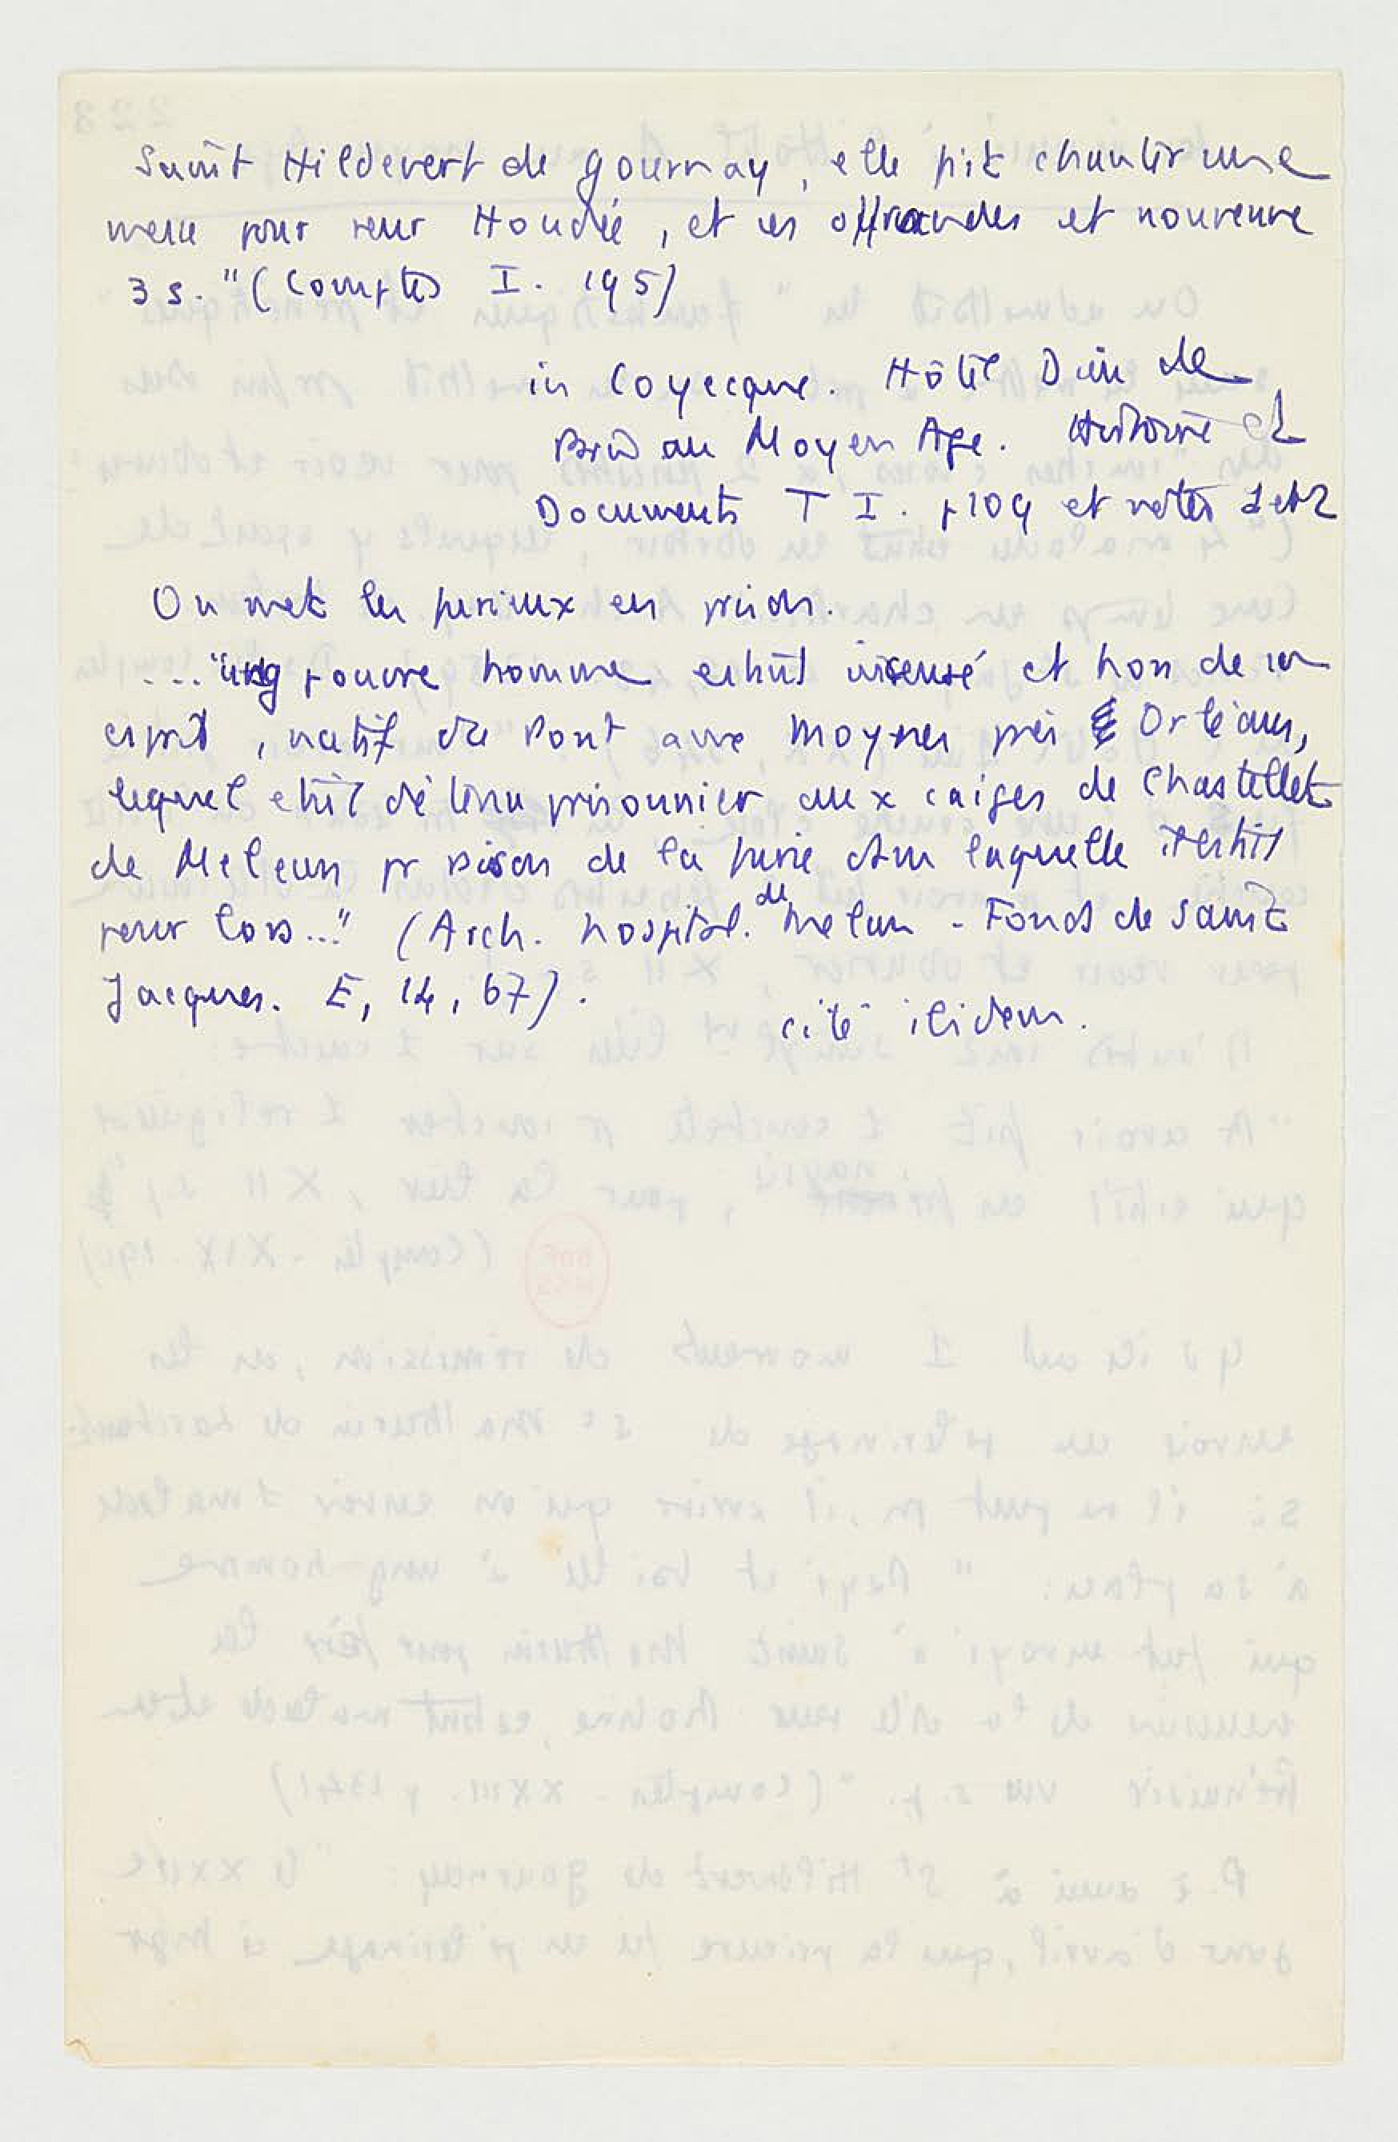 Saint Hildevert de Gournay, elle fit chanter une
messe pour seur Houdée, et en offrandes et nourreture
3 s." (Comptes I. 195)
in Coyecque. Hôtel Dieu de
Paris au Moyen Age. Histoire et
Documents T I. p109 et notes 1 et 2
On met les furieux en prison.
... "ung pouvre homme estant insensé et hors de son
esprit, natif du Pont aux Moynes près Orléans,
lequel estoit détenu prisonnier aux caiges de Chastellet
de Meleun pr raison de la furie dans laquelle il estoit
pour lors..." (Arch. hospital. de Melun - Fonds de Saint
Jacques. E, 14, 67).
cité ibidem.